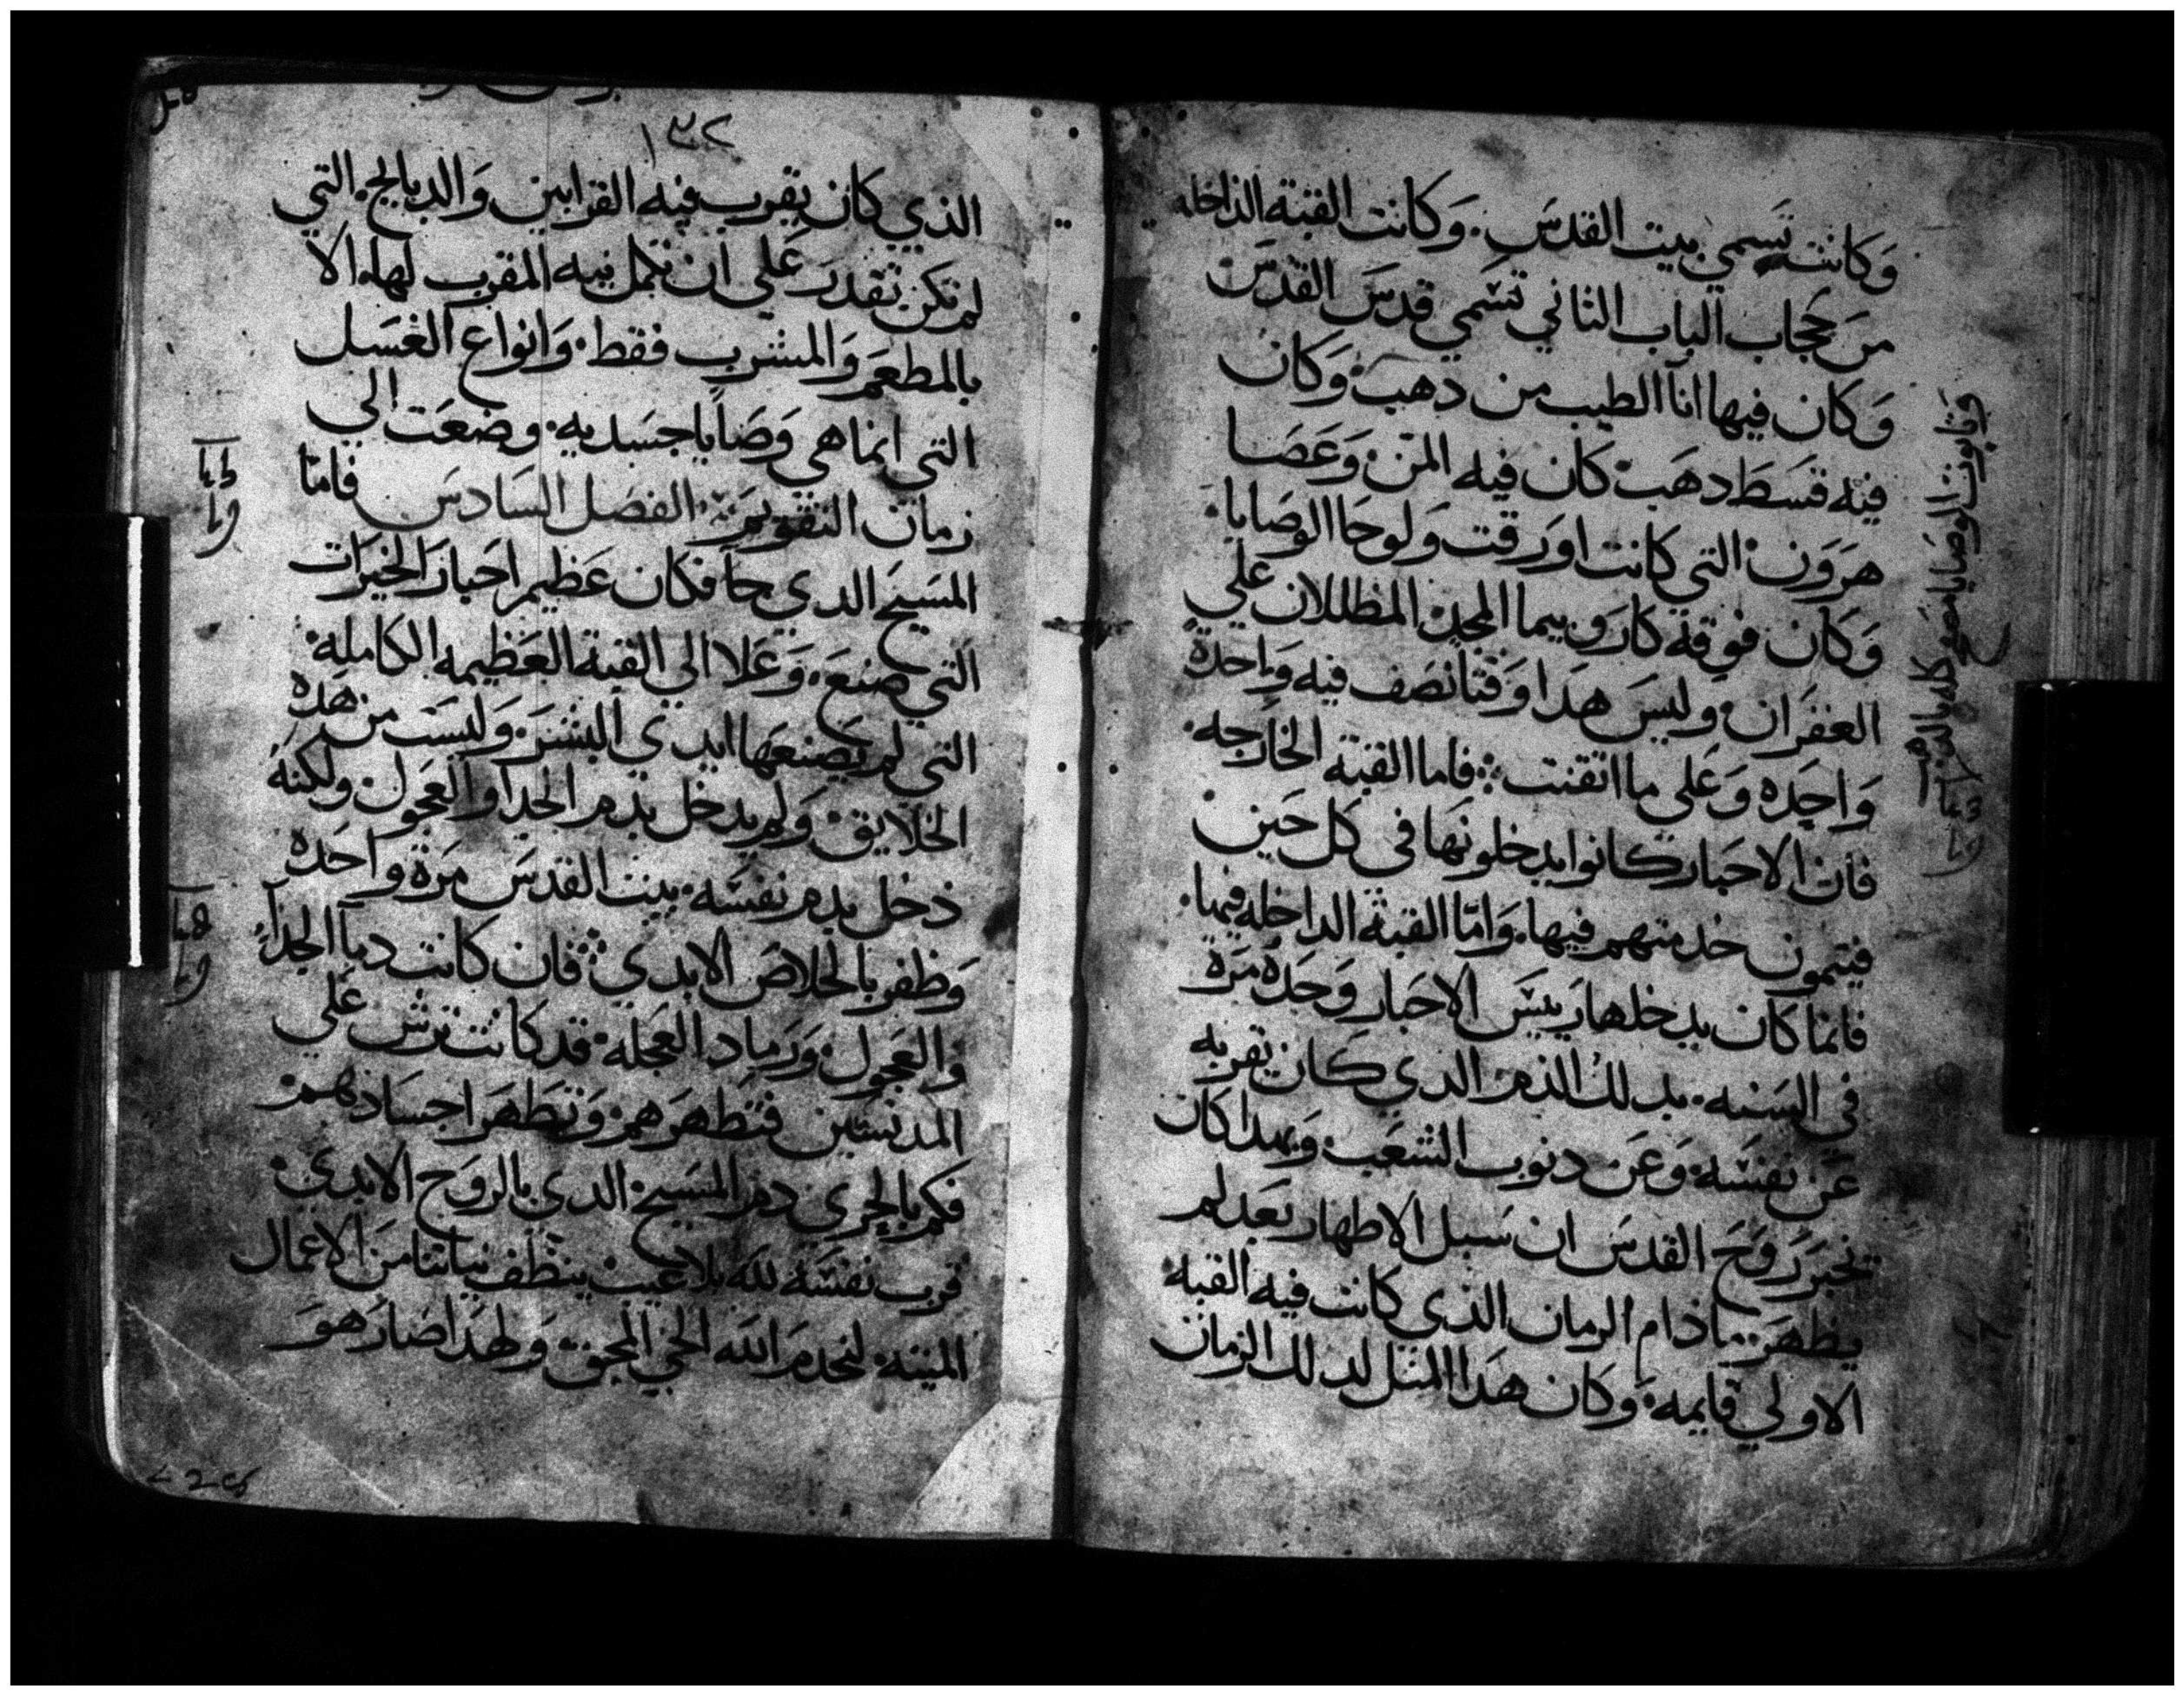 وكانت تسمي بيت القدس. وكانت القبة الداخله
من حجاب الباب الثاني تسمي قدس القدس
وكان فيها انآ الطيب من دهب وكان
فيه قسط دهب كان فيه المن وعصا
هرون التي كانت اورقت ولوحا الوصايا.
وكان فوقه كاروبيما المجد المظللان علي
الغفران. وليس هدا وقتا نصف فيه واحدة
واحده وعلي ما اتقنت فاما القبة الخارجه.
فان الاحبار كانوا يدخلونها في كل حين
فيتمون خدمتهم فيها. واما القبة الداخله فيها.
فانما كان يدخلها رييس الاحبار وحده مرة
في السنه. بدلك الدم الدي كان يقربه
عن نفسه وعن دنوب الشعب وبهدا كان
تخبر روح القدس ان سبل الاطهار بعد لم
يظهر مادام الزمان الذي كانت فيه القبه
الاولي قايمه وكان هدا المثل لدلك الزمان
وتابوت الوصايا مصفح كله بالدهب
١٣٢
الذي كان يقرب فيه القرابين والدبايح. التي
لم تكن تقدر علي ان تكمل نيه المقرب لها. الا
بالمطعم والمشرب فقط. وانواع الغسل
التي انما هي وصايا جسديه. وضعت الي
زمان التقويم. الفصل السادس فاما
المسيح الدي جا فكان عظيم احبار الخيرات
التي صنع. وعلا الي القبة العظيمه الكامله.
التي لم يصنعها ايدي البشر. وليست من هده
الخلايق ولم يدخل بدم الجدا والعجول ولكنه
دخل بدم نفسه. بيت القدس مرة واحده
وظفر بالخلاص الابدي فان كانت دمآ الجدآ
والعجول ورماد العجله. قد كانت ترش علي
المدنسين فتطهرهم وتطهر اجسادهم.
فكم بالحري دم المسيح. الدي بالروح الابدي.
قرب نفسه لله بلا عيب ينظف نياتنا من الاعمال
الميته. لنخدم الله الحي المحق ولهدا صار هو